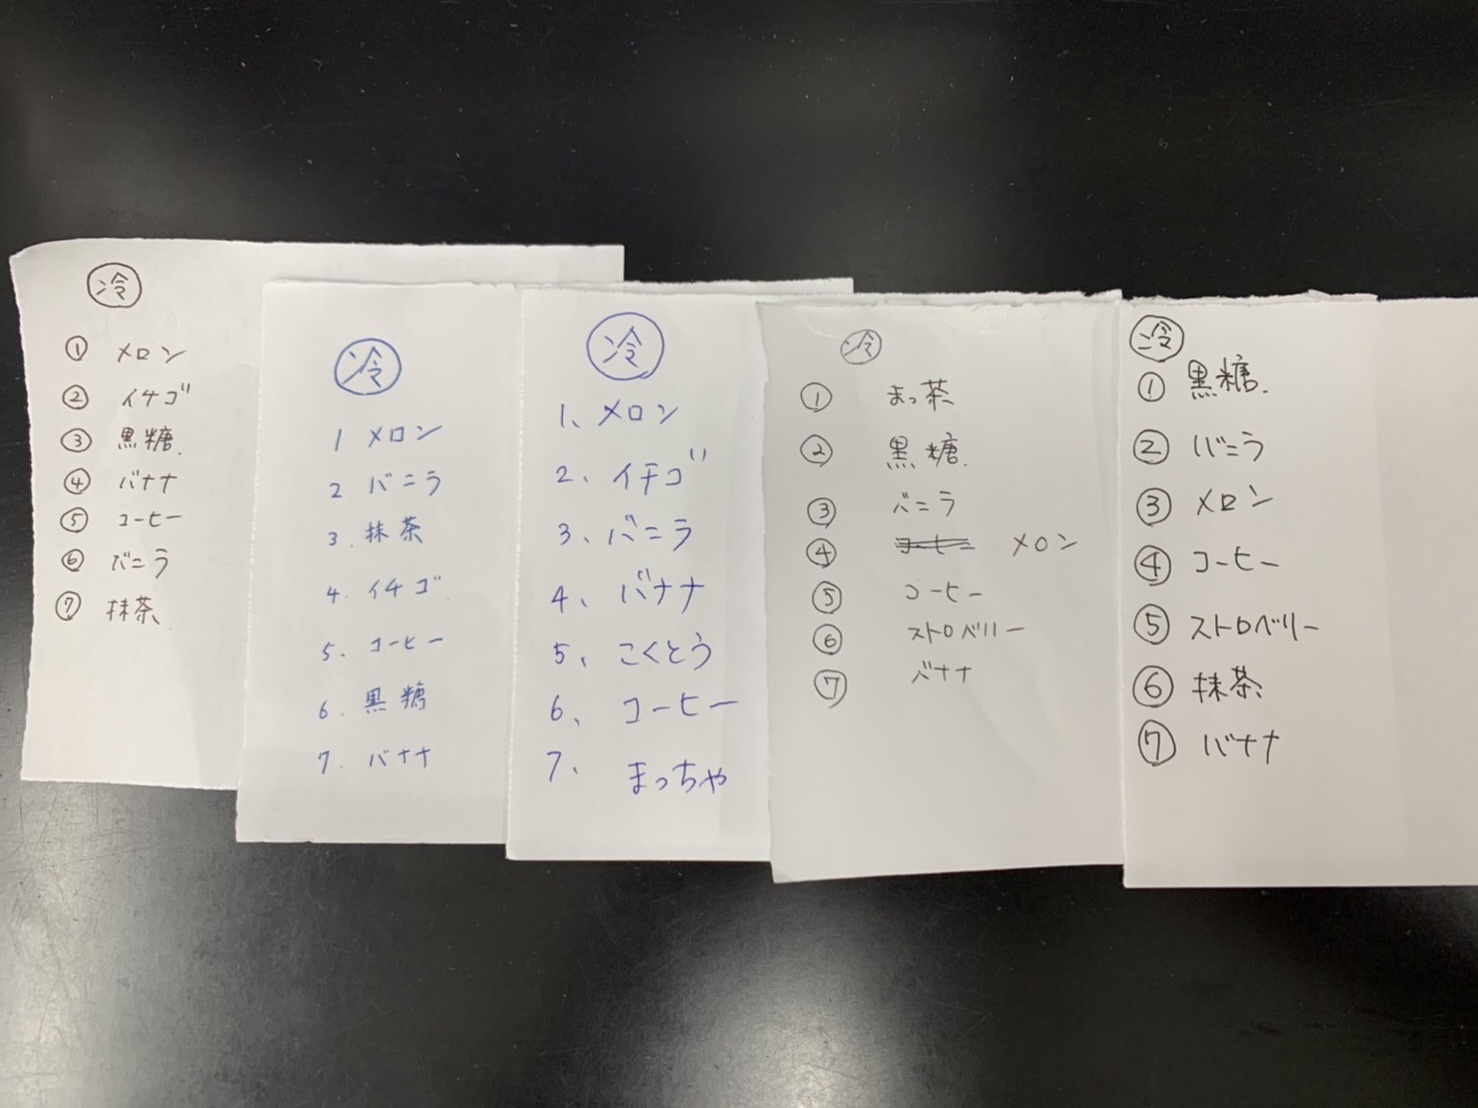 冷
① メロン
② イチゴ
③ 黒糖.
④ バナナ
⑤ コーヒー
⑥ バニラ
⑦ 抹茶
冷
1 メロン
2 バニラ
3. 抹茶
4. イチゴ
5. コーヒー
6. 黒糖
7. バナナ
冷
1、メロン
2、イチゴ
3、バニラ
4、バナナ
5、こくとう
6、コーヒー
7、まっちゃ
冷
① まっ茶
② 黒糖.
③ バニラ
④ コーヒー メロン
⑤ コーヒー
⑥ ストロベリー
⑦ バナナ
冷
① 黒糖.
② バニラ
③ メロン
④ コーヒー
⑤ ストロベリー
⑥ 抹茶
⑦ バナナ